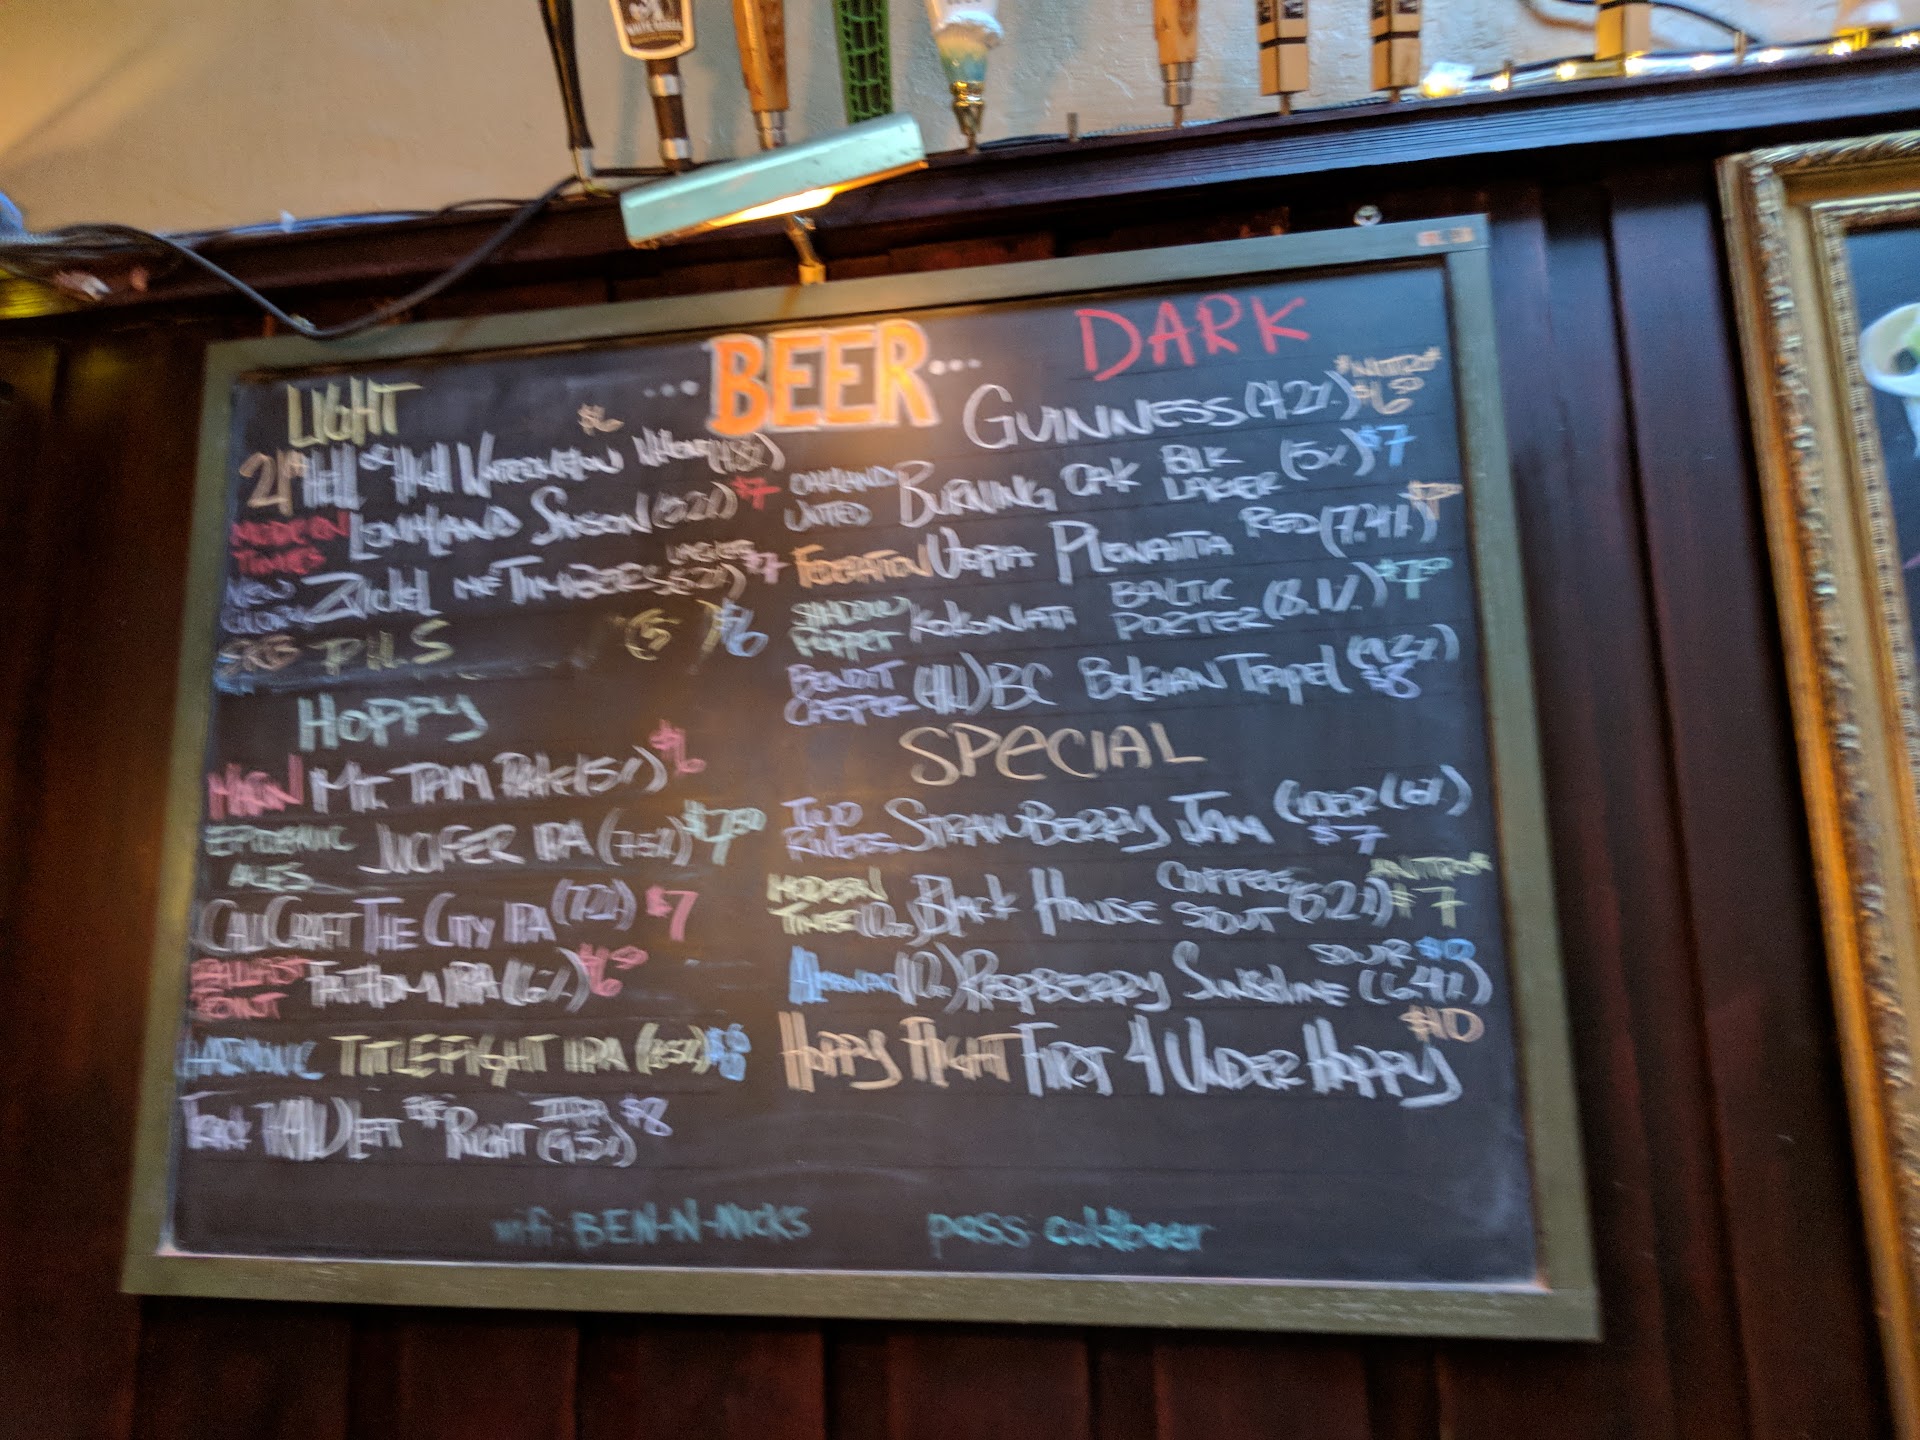 ... BEER ...
LIGHT
$6
21st Hell or High Watermelon Wheat
MODERN TIMES Lomaland Saison (5.2%) $7
NEW Zickel
LAGER $7
PILS (5 ) $6
HOPPY
MARIN Mt. TAM PALE (5%) $6
EPIDEMIC ALES JUCIFER IPA (7.5%) $7.50
CALICRAFT THE CITY IPA (7.2%) $7
BALLAST POINT FATHOM IPA (6%) $6.50
HARMONIC TITLEFIGHT IIPA $8
TRACK 7 LEFT RIGHT IIPA (9.5%) $8
DARK
*NITRO*
GUINNESS (4.2%) $6.50
OAKLAND UNITED BURNING OAK BLK LAGER (5%) $7
FOGBELT UTOPIA RED (7.4%)
SHADOW PUPPET KOKONATI BALTIC PORTER (8.1%) $7.50
BC BELGIAN TRIPEL (9.2%) $8
SPECIAL
TWO RIVERS STRAWBERRY JAM CIDER (6%) $7
*NITRO*
MODERN TIMES (10oz) BLACK HOUSE COFFEE STOUT (5.2%) $7
(10oz) RASPBERRY SUNSHINE SOUR (6.4%) $10
HOPPY FLIGHT FIRST 4 UNDER HOPPY $10
wifi: BEN-N-NICKS pass: coldbeer